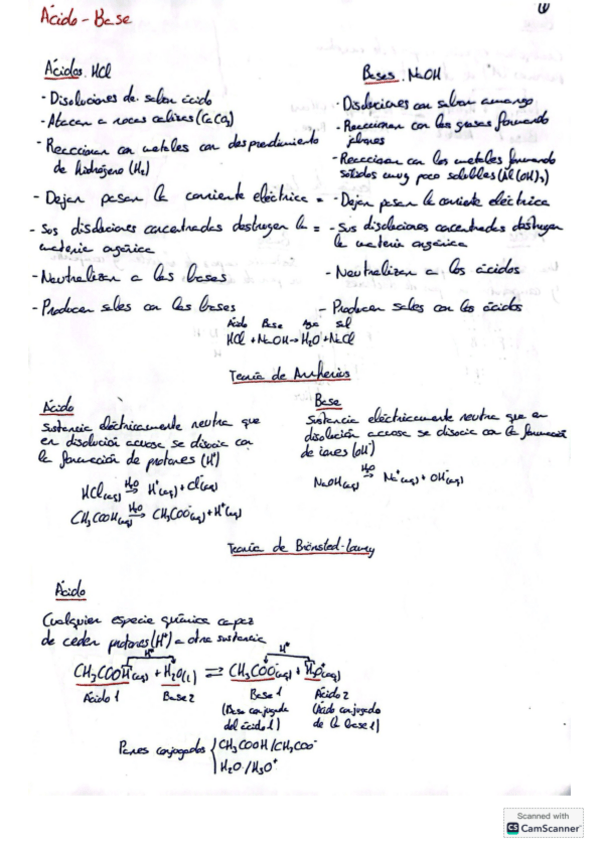 Ácido-Base
Ácidos. HCl
- Disoluciones de sabor ácido
- Atacan a rocas calizas (CaCO3)
- Reaccionan con metales con desprendimiento
de hidrógeno (H2)
- Dejan pasar la corriente eléctrica =
- Sus disoluciones concentradas destruyen la =
materia orgánica
- Neutralizan a las bases
- Producen sales con las bases
Bases. NaOH
- Disoluciones con sabor amargo
- Reaccionan con las grasas formando
jabones
- Reaccionan con los metales formando
sólidos muy poco solubles (Al(OH)3)
- Dejan pasar la corriente eléctrica
- Sus disoluciones concentradas destruyen
la materia orgánica
- Neutralizan a los ácidos
- Producen sales con los ácidos
Ácido Base Agua Sal
HCl + NaOH → H2O + NaCl
Teoría de Arrhenius
Ácido
Sustancia eléctricamente neutra que
en disolución acuosa se disocia con
la formación de protones (H+)
HCl(aq) H2O→ H+(aq) + Cl-(aq)
CH3COOH(aq) H2O→ CH3COO-(aq) + H+(aq)
Base
Sustancia eléctricamente neutra que en
disolución acuosa se disocia con la formación
de iones (OH-)
NaOH(aq) H2O→ Na+(aq) + OH-(aq)
Teoría de Brönsted-Lowry
Ácido
Cualquier especie química capaz
de ceder protones (H+) a otra sustancia
H+ H+
CH3COOH(aq) + H2O(l) ⇌ CH3COO-(aq) + H3O+(aq)
Ácido 1 Base 2 Base 1 Ácido 2
(Base conjugada (Ácido conjugado
del ácido 1) de la base 1)
Pares conjugados { CH3COOH / CH3COO-
H2O / H3O+
Scanned with
CS CamScanner